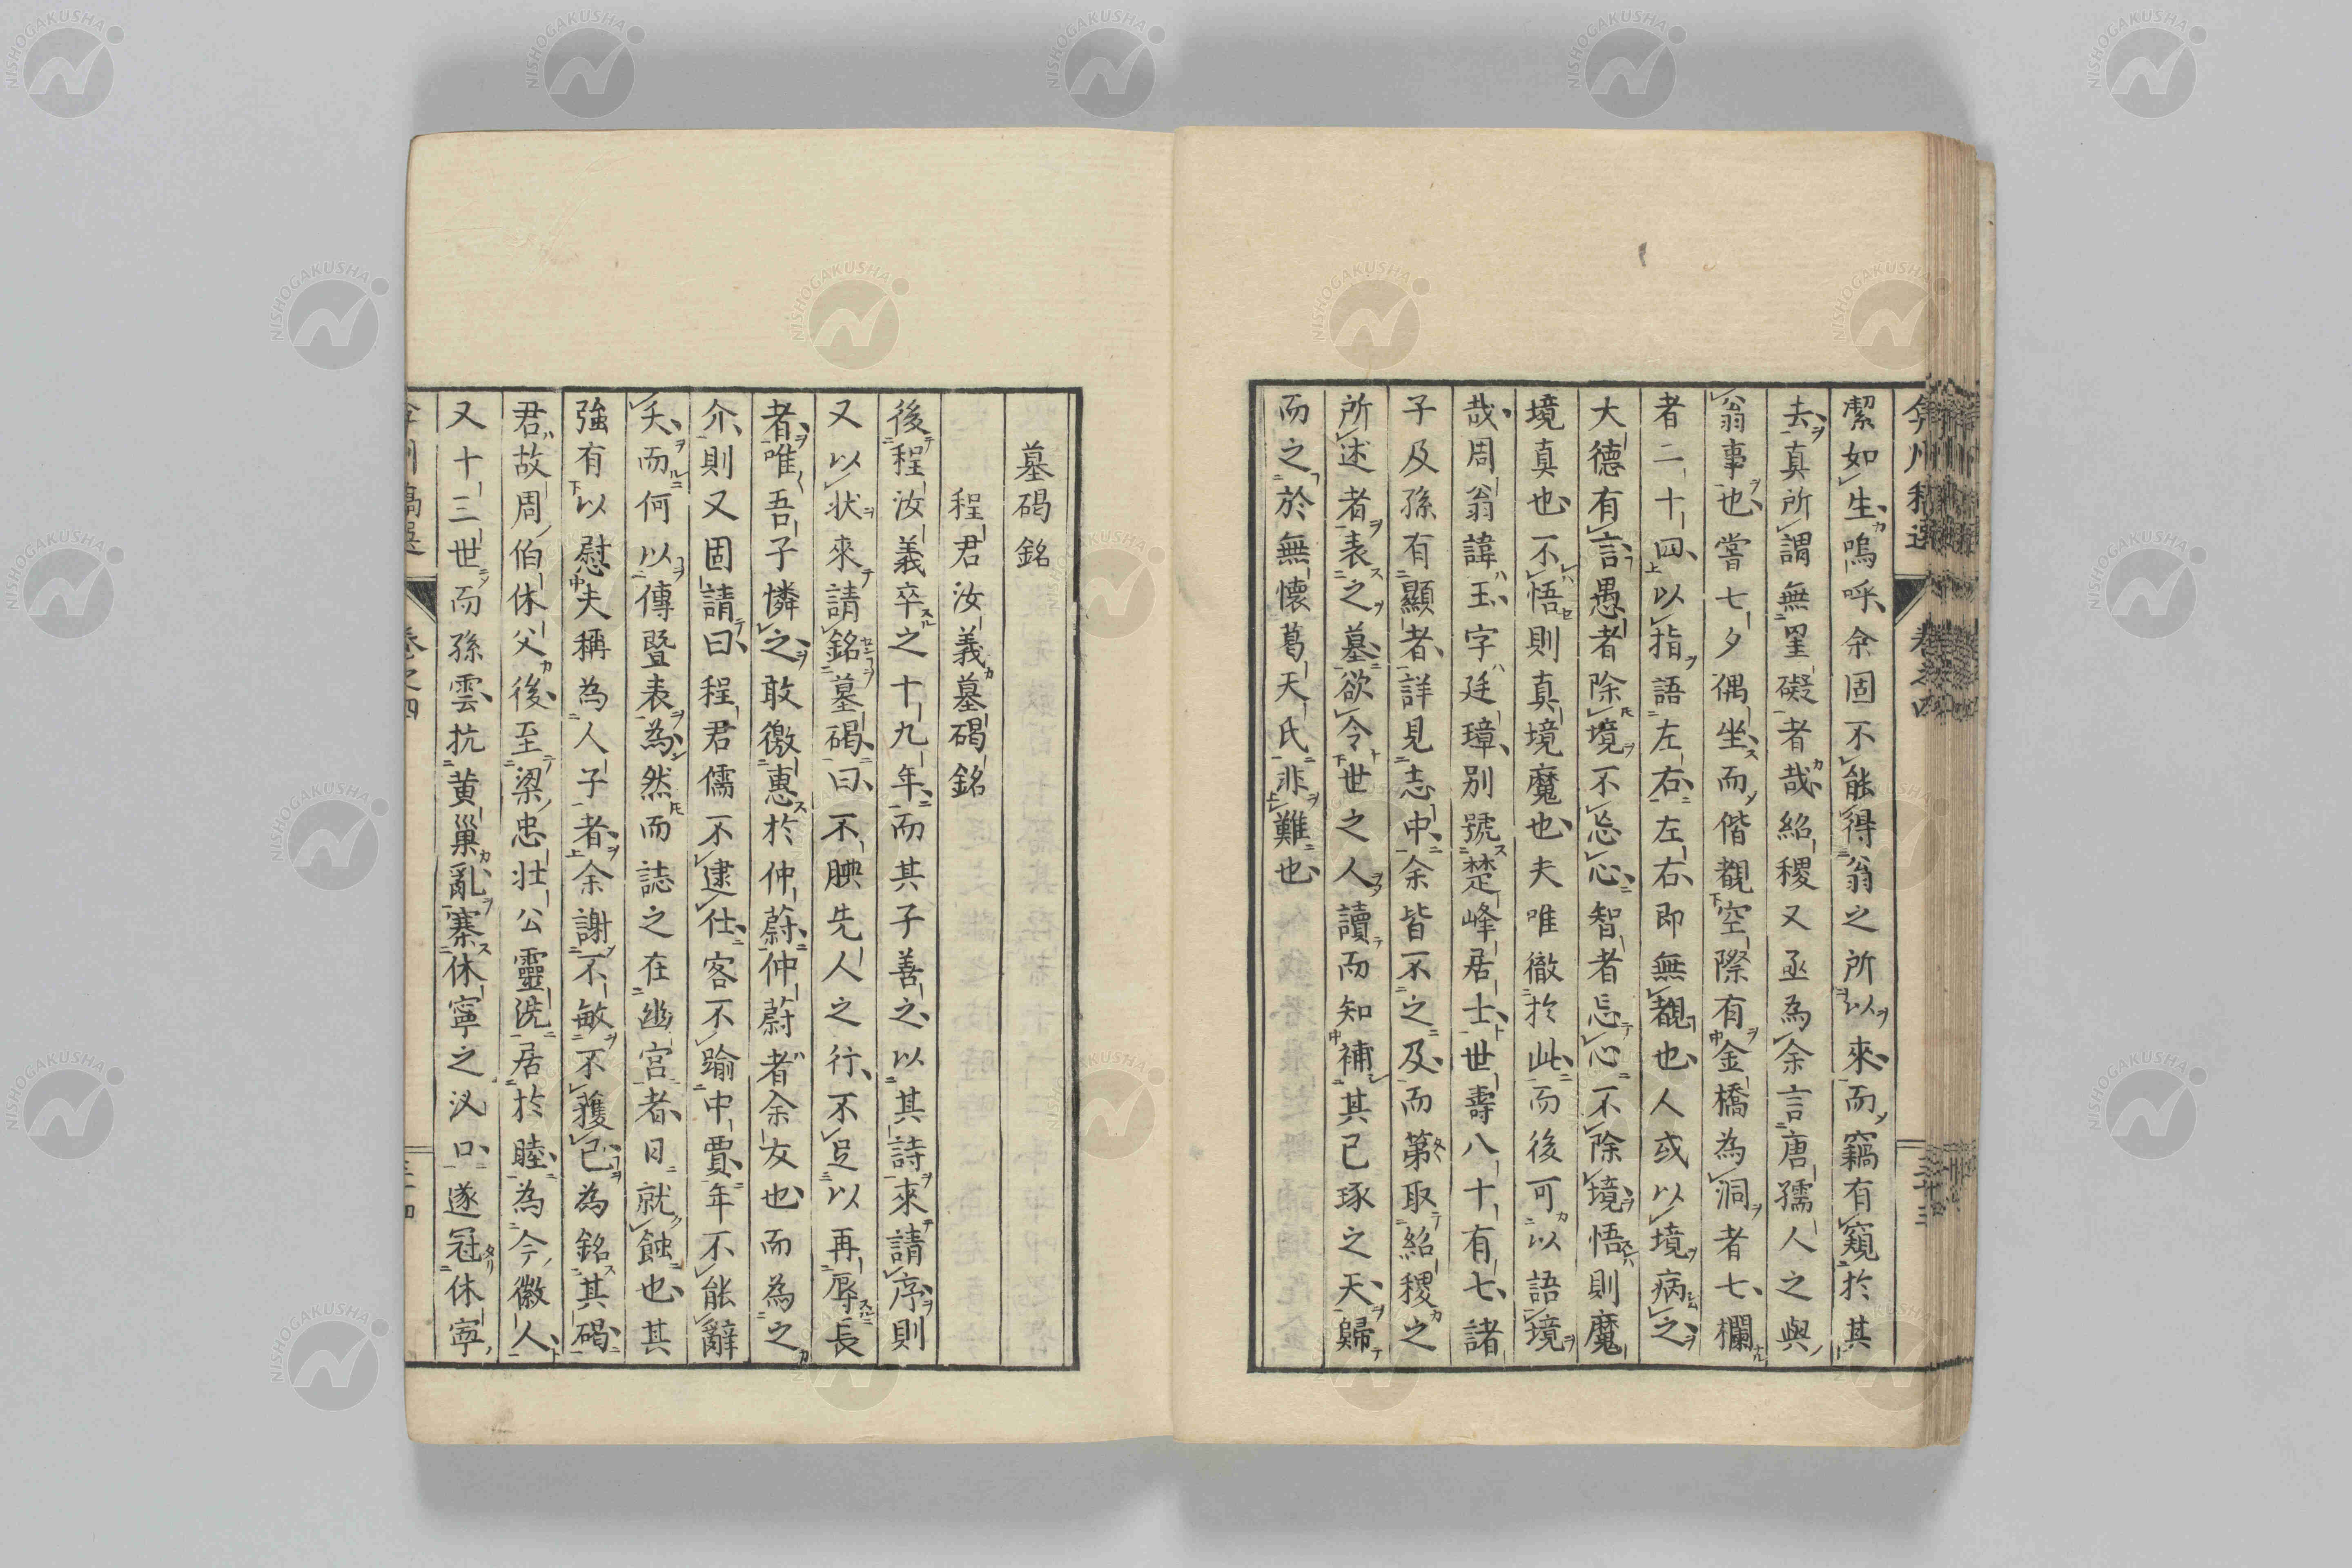 弇州稿選 卷之四 三十三
潔如生嗚呼余固不能得翁之所以來而竊有窺於其
去真所謂無罣礙者哉紹稷又亟為余言唐孺人之與
翁事也嘗七夕偶坐而偕覩空際有金橋為洞者七欄
者二十四以指語左右左右即無覩也人或以境病之
大德有言愚者除境不忘心智者忘心不除境悟則魔
境真也不悟則真境魔也夫唯徹於此而後可以語境
哉周翁諱玉字廷璋別號楚峰居士世壽八十有七諸
子及孫有顯者詳見志中余皆不之及而第取紹稷之
所述者表之墓欲令世之人讀而知補其已琢之天歸
而之於無懷葛天氏非難也
墓碣銘
程君汝義墓碣銘
後程汝義卒之十九年而其子善之以其詩來請序則
又以狀來請銘墓碣曰不腆先人之行不足以再辱長
者唯吾子憐之敢徼惠於仲蔚仲蔚者余友也而為之
介則又固請曰程君儒不逮仕客不踰中賈年不能辭
夭而何以傳暨表為然而誌之在幽宮者日就蝕也其
強有以慰夫稱為人子者余謝不敏不獲已為銘其碣
君故周伯休父後至梁忠壯公靈洗居於睦為今徽人
又十三世而孫雲抗黃巢亂寨休寧之汊口遂冠休寧
卷之四